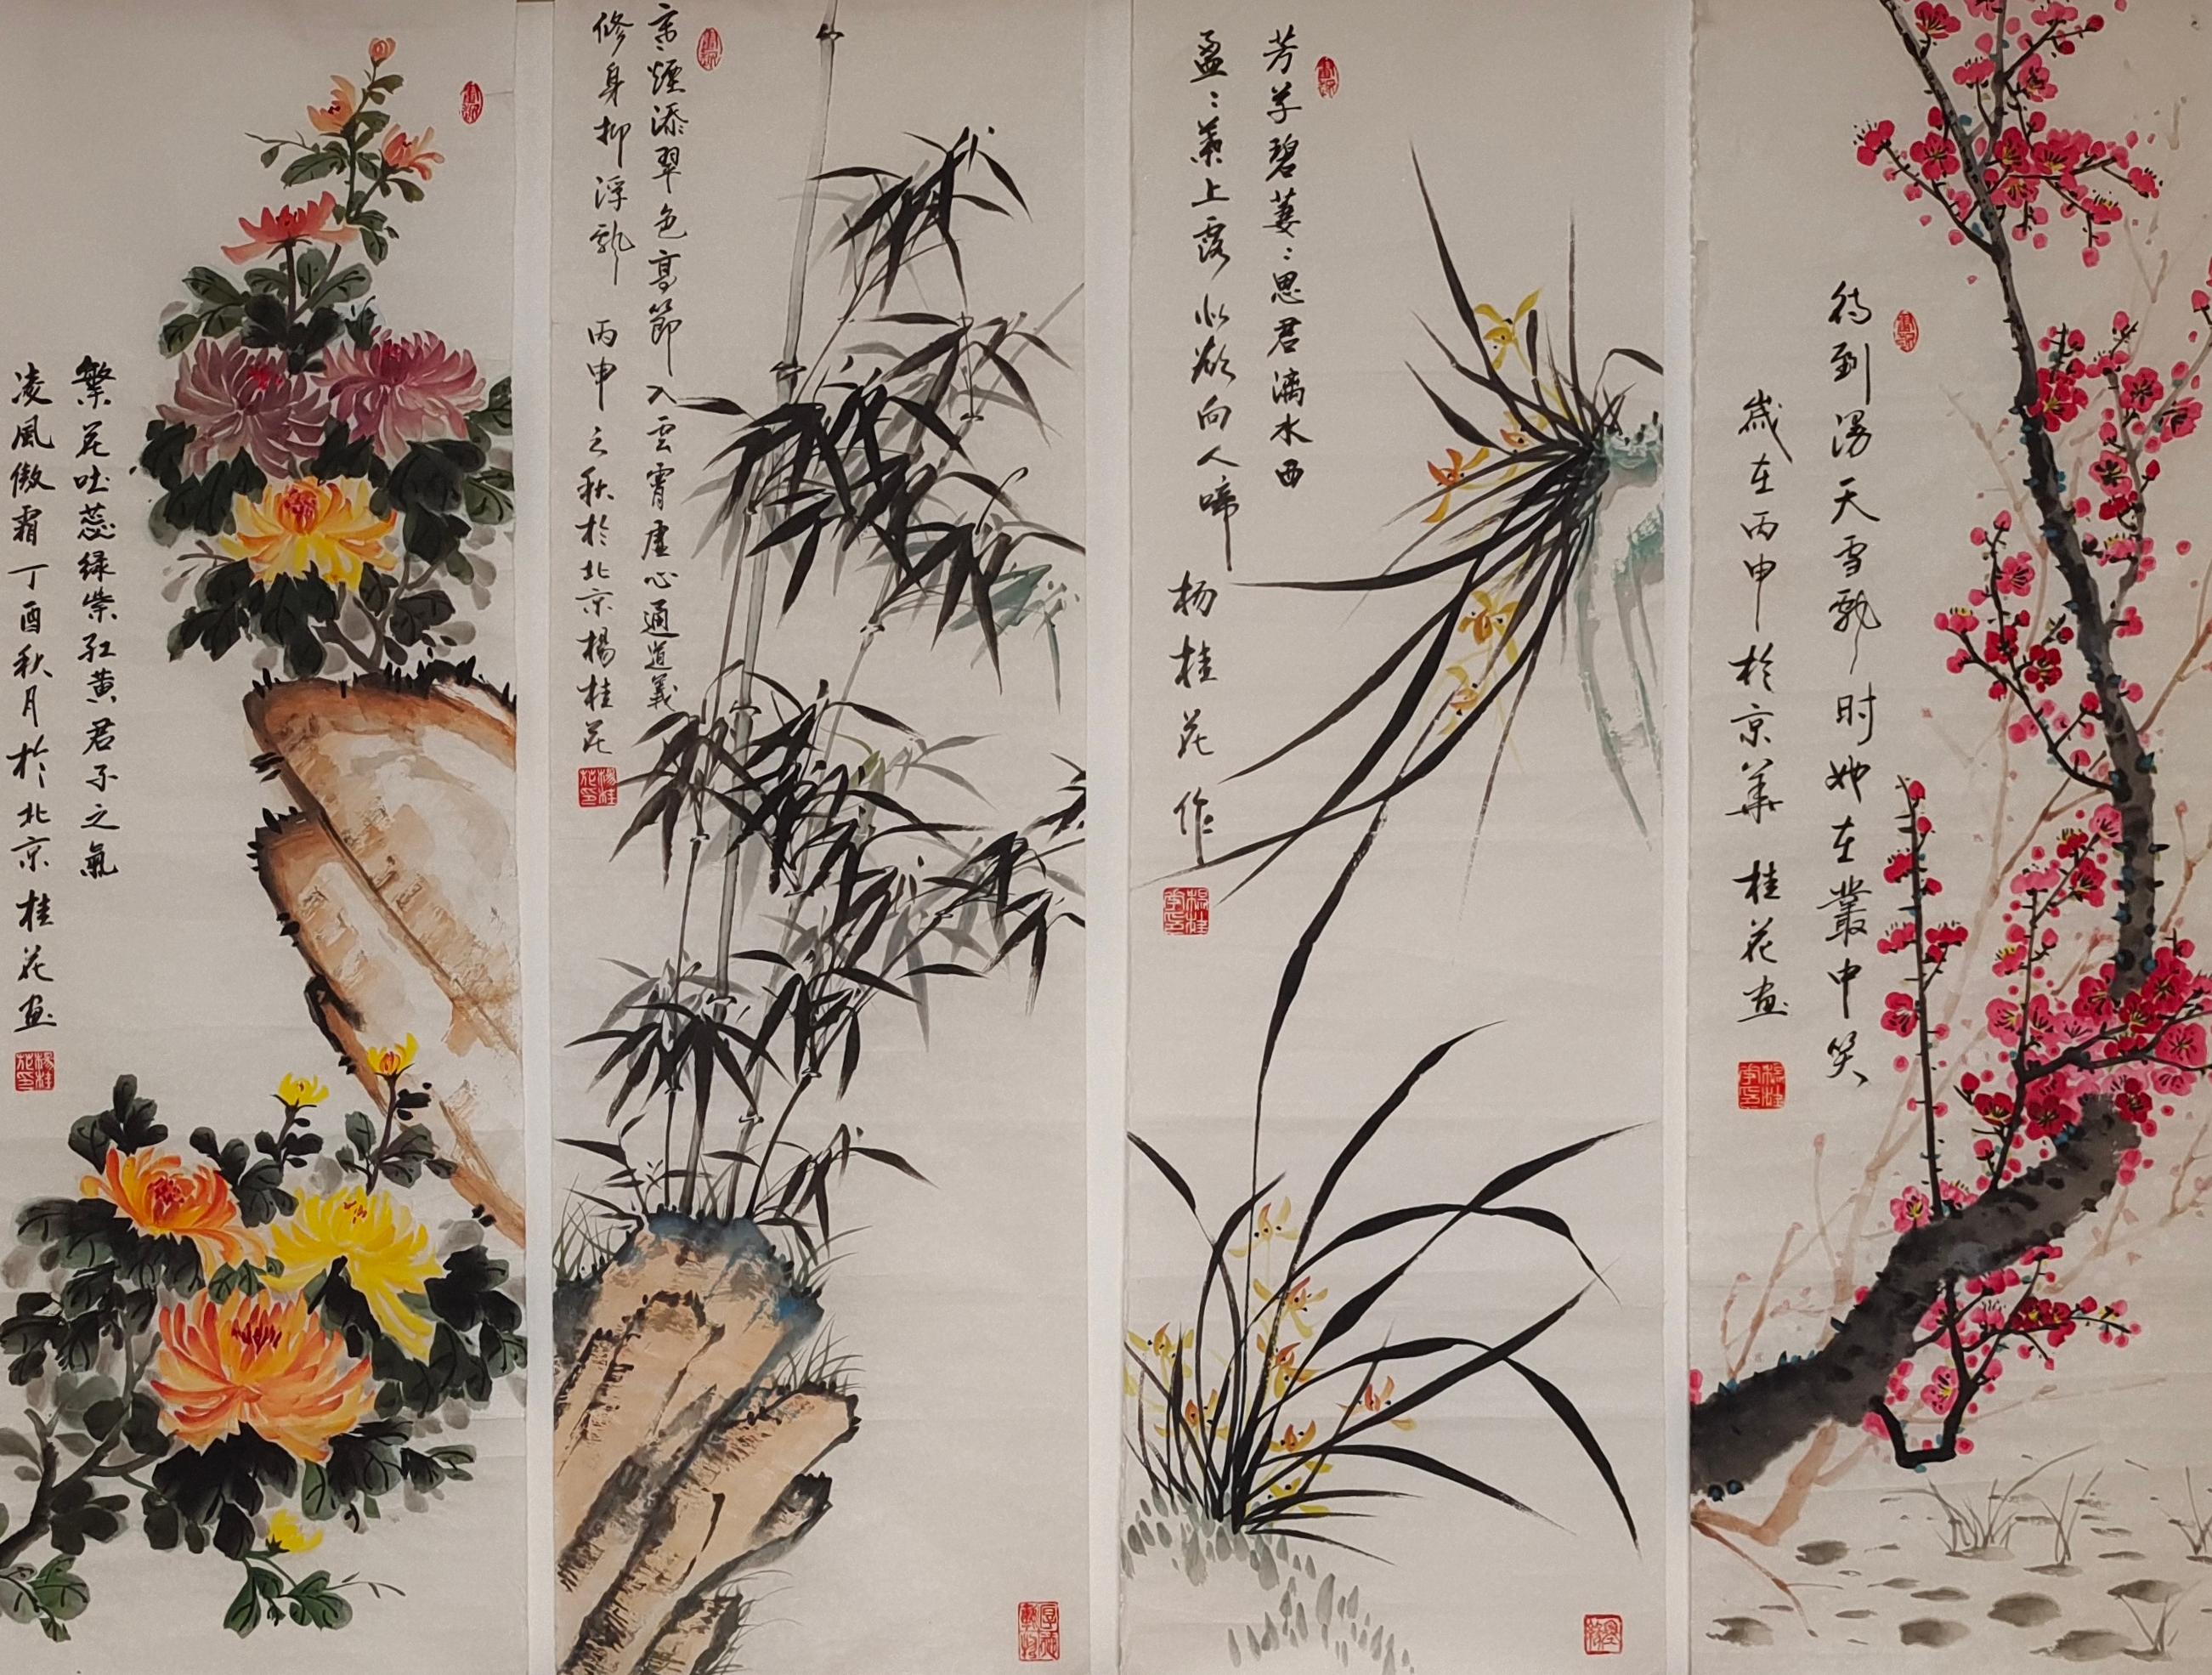 待到漫天雪飘时她在叢中笑
歲在丙申於京華 桂花画
芳草碧萋：思君漓水西
盈：葉上露似欲向人啼 杨桂花作
寒煙添翠色高節入雲霄虚心通道義
修身抑浮飘 丙申之秋於北京楊桂花
楊桂花印
厚德載物
繁花吐蕊绿紫红黄君子之氣
凌風傲霜丁酉秋月於北京桂花画
楊桂花印